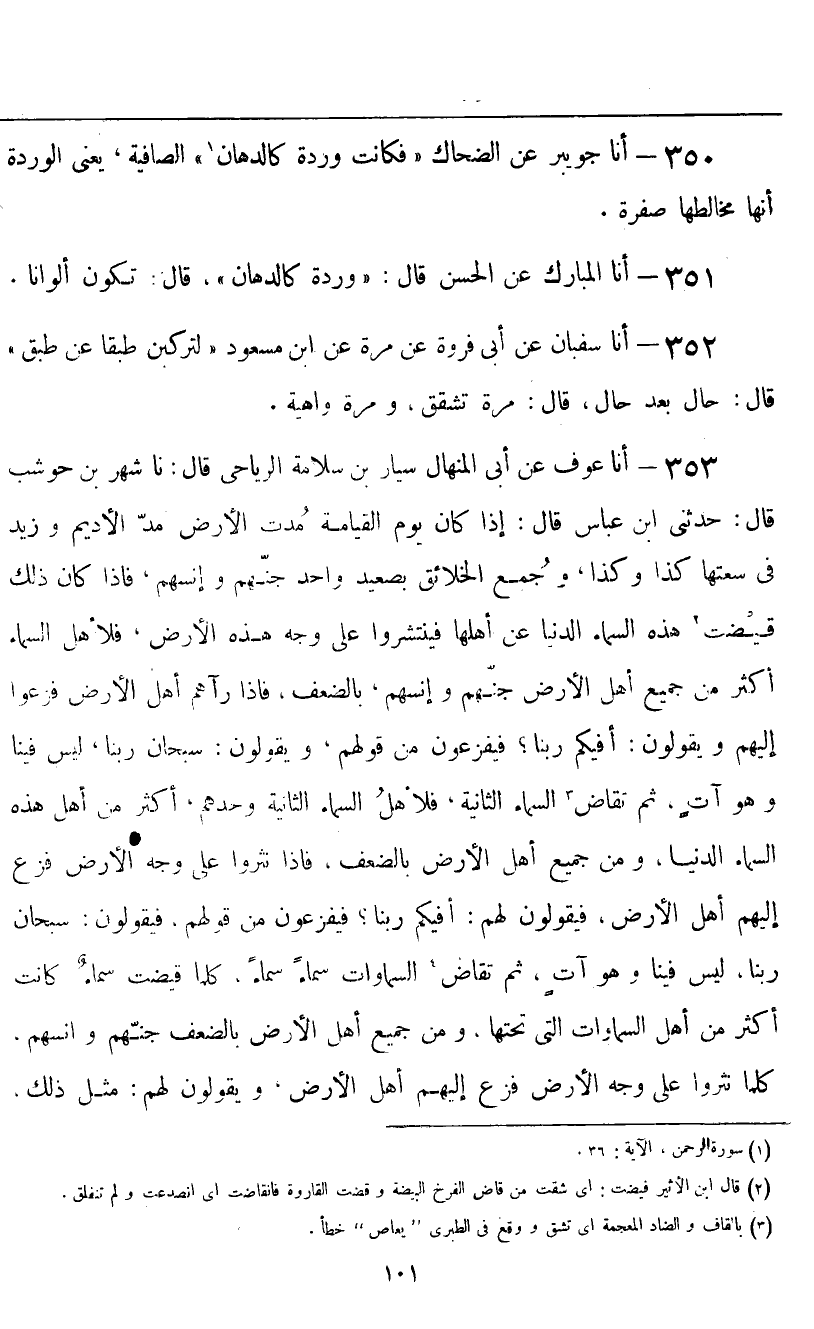 ٣٥٠ – أنا جويبر عن الضحاك « فكانت وردة كالدهان١ » الصافية ، يعنى الوردة
أنها مخالطها صفرة .
٣٥١ – أنا المبارك عن الحسن قال : « وردة كالدهان » ، قال : تكون ألوانا .
٣٥٢ – أنا سفيان عن أبى فروة عن مرة عن ابن مسعود « لتركبن طبقا عن طبق »
قال : حال بعد حال ، قال : مرة تشقق ، و مرة واهية .
٣٥٣ – أنا عوف عن أبى المنهال سيار بن سلامة الرياحى قال : نا شهر بن حوشب
قال : حدثنى ابن عباس قال : إذا كان يوم القيامة مُدت الأرض مدّ الأديم و زيد
فى سعتها كذا و كذا ، و جُمع الخلائق بصعيد واحد جنّهم و إنسهم ، فاذا كان ذلك
قيُضت٢ هذه السماء الدنيا عن أهلها فينتشروا على وجه هذه الأرض ، فلأهل السماء
أكثر من جميع أهل الأرض جنّهم و إنسهم ، بالضعف ، فاذا رآهم أهل الأرض فزعوا
إليهم و يقولون : أفيكم ربنا ؟ فيفزعون من قولهم ، و يقولون : سبحان ربنا ، ليس فينا
و هو آتٍ ، ثم تقاض٣ السماء الثانية ، فلأهلُ السماء الثانية وحدهم ، أكثر من أهل هذه
السماء الدنيا ، و من جميع أهل الأرض بالضعف ، فاذا نثروا على وجه الأرض فزع
إليهم أهل الأرض ، فيقولون لهم : أفيكم ربنا ؟ فيفزعون من قولهم ، فيقولون : سبحان
ربنا ، ليس فينا و هو آتٍ ، ثم تقاض٤ السماوات سماءً سماءً ، كلما قيضت سماءٌ كانت
أكثر من أهل السماوات التى تحتها ، و من جميع أهل الأرض بالضعف جنّهم و انسهم .
كلما نثروا على وجه الأرض فزع إليهم أهل الأرض ، و يقولون لهم : مثل ذلك .
(١) سورة الرحمن ، الآية : ٣٦ .
(٢) قال ابن الأثير قيضت : اى شقت من قاض الفرخ البيضة و قضت القاروة فانقاضت اى انصدعت و لم تنفلق .
(٣) بالقاف و الضاد المعجمة اى تشق و وقع فى الطبرى " يعاص " خطأ .
١٠١